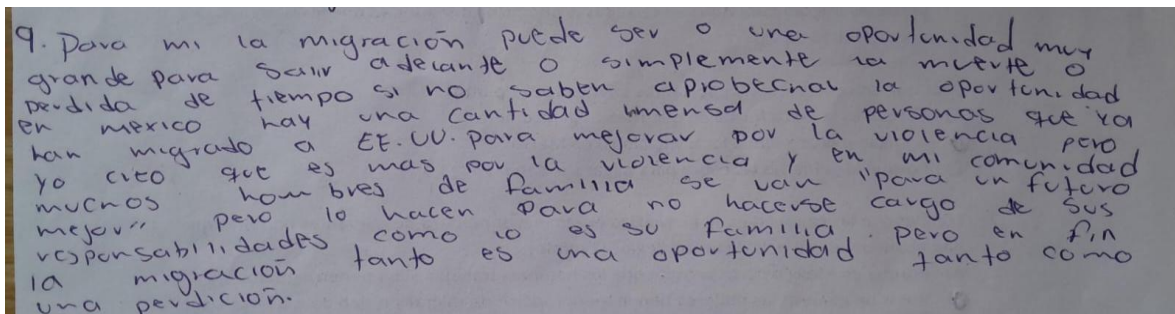 9. Para mi la migración puede ser o una oportunidad muy
grande para salir adelante o simplemente la muerte o
perdida de tiempo si no saben aprobechar la oportunidad
en mexico hay una cantidad inmensa de personas que ya
han migrado a EE.UU. para mejorar por la violencia pero
yo creo que es mas por la violencia y en mi comunidad
muchos hombres de familia se van "para un futuro
mejor" pero lo hacen para no hacerse cargo de sus
responsabilidades como lo es su familia. pero en fin
la migración tanto es una oportunidad tanto como
una perdición.